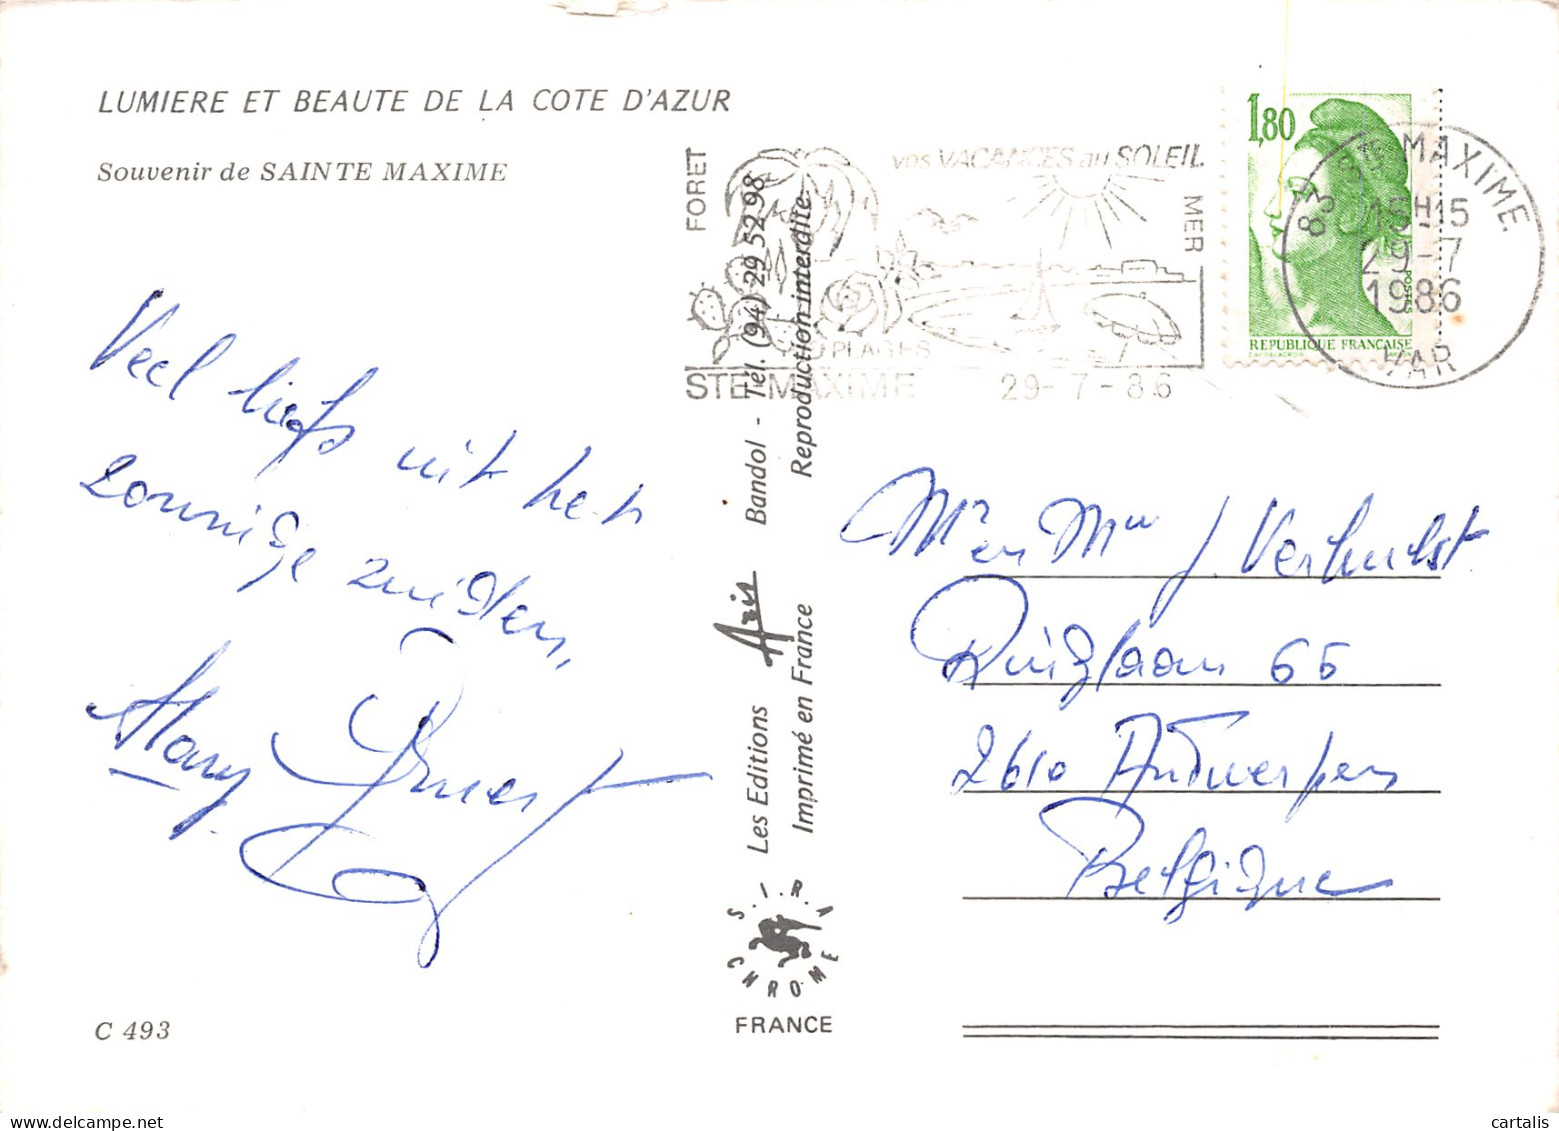 LUMIERE ET BEAUTE DE LA COTE D'AZUR
Souvenir de SAINTE MAXIME
Veel liefs uit het
zonnige zuiden,
Mary
Ernest
C 493
FORET
vos VACANCES au SOLEIL
MER
PLAGES
STE MAXIME 29-7-86
1,80
POSTES
REPUBLIQUE FRANÇAISE
83 STE MAXIME
15H15
29-7
1986
VAR
Les Editions Aris Bandol - Tél. (94) 29 52 98
Imprimé en France Reproduction interdite
S.I.R.A
CHROME
FRANCE
Mr en Mw J. Verhulst
Ruiglaan 66
2610 Antwerpen
Belgique
www.cartalis.com